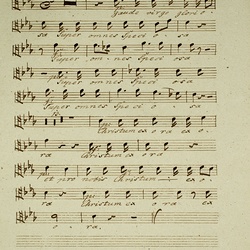 Gaude virgo glorio-
sa Super omnes Speci osa
Super om-nes Speci osa
Super omnes Speci osa
Super omnes Speci o-sa
Christum exora exo-
ra Christum exora
et pro nobis Christum exo-
ra Christum exora exo
ra.